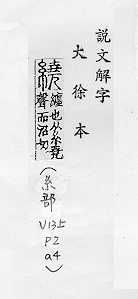 説文解字
大徐本
繞 纏也从糸堯
聲而沼切
(糸部
V13上
P2
a4)